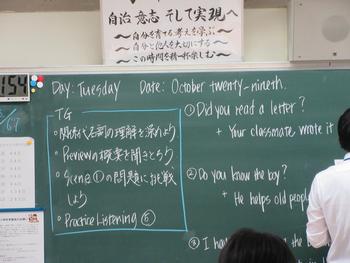 自治 意志 そして 実現へ
～自分を育てる考えを学ぶ～
～自分と他人を大切にする～
～この時間を精一杯楽しむ～
154
Day: Tuesday Date: October twenty-nineth.
TG
の理解を深めよう
・Previewの授業を聞きとろう
・Scene①の問題に挑戦
しよう
・Practice Listening ⑥
① Did you read a letter?
+ Your classmate wrote it
② Do you know the boy?
+ He helps old people
③ I ha